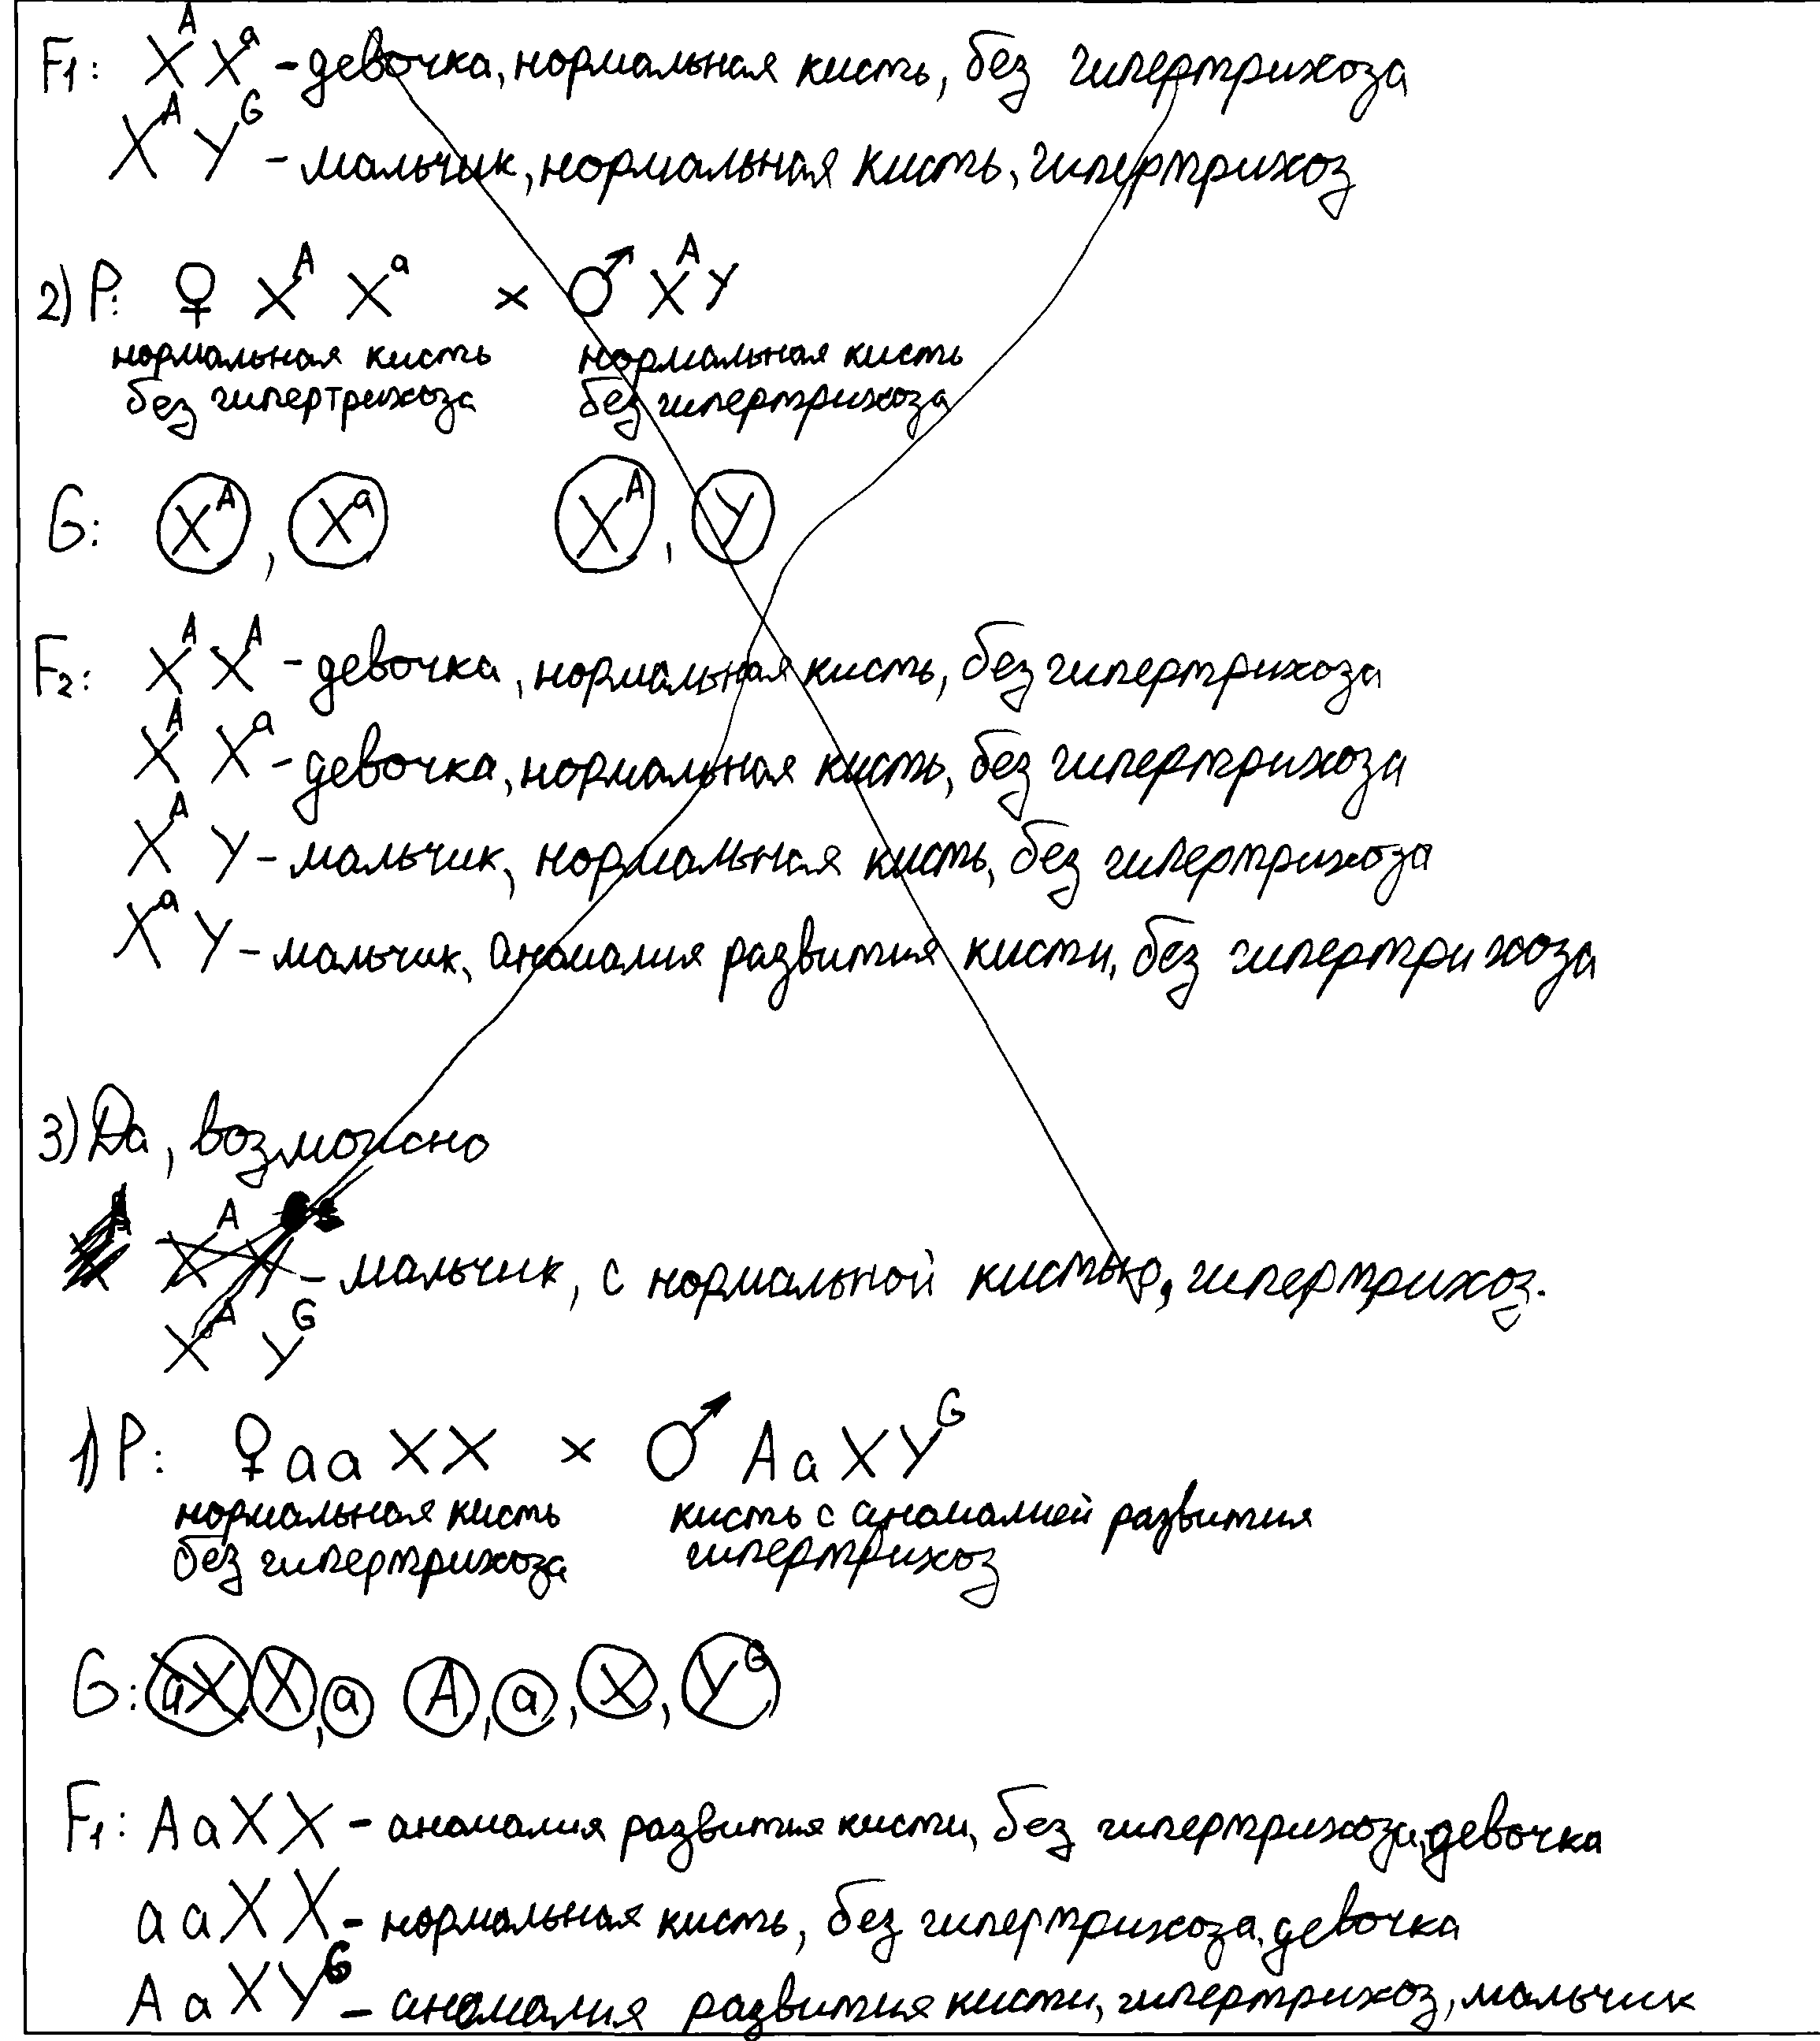 F₁: Xᴬ Xᵃ - девочка, нормальная кисть, без гипертрихоза
Xᴬ Yᴳ - мальчик, нормальная кисть, гипертрихоз
2) P: ♀ Xᴬ Xᵃ × ♂ Xᴬ Y
нормальная кисть нормальная кисть
без гипертрихоза без гипертрихоза
G: Xᴬ, Xᵃ Xᴬ, Y
F₂: Xᴬ Xᴬ - девочка, нормальная кисть, без гипертрихоза
Xᴬ Xᵃ - девочка, нормальная кисть, без гипертрихоза
Xᴬ Y - мальчик, нормальная кисть, без гипертрихоза
Xᵃ Y - мальчик, аномалия развития кисти, без гипертрихоза
3) Да, возможно
- мальчик, с нормальной кистью, гипертрихоз.
Xᴬ Yᴳ
1) P: ♀ aa XX × ♂ Aa XYᴳ
нормальная кисть кисть с аномалией развития
без гипертрихоза гипертрихоз
G: aX X, a A, a, X, Yᴳ
F₁: AaXX - аномалия развития кисти, без гипертрихоза, девочка
aaXX - нормальная кисть, без гипертрихоза, девочка
AaXYᴳ - аномалия развития кисти, гипертрихоз, мальчик